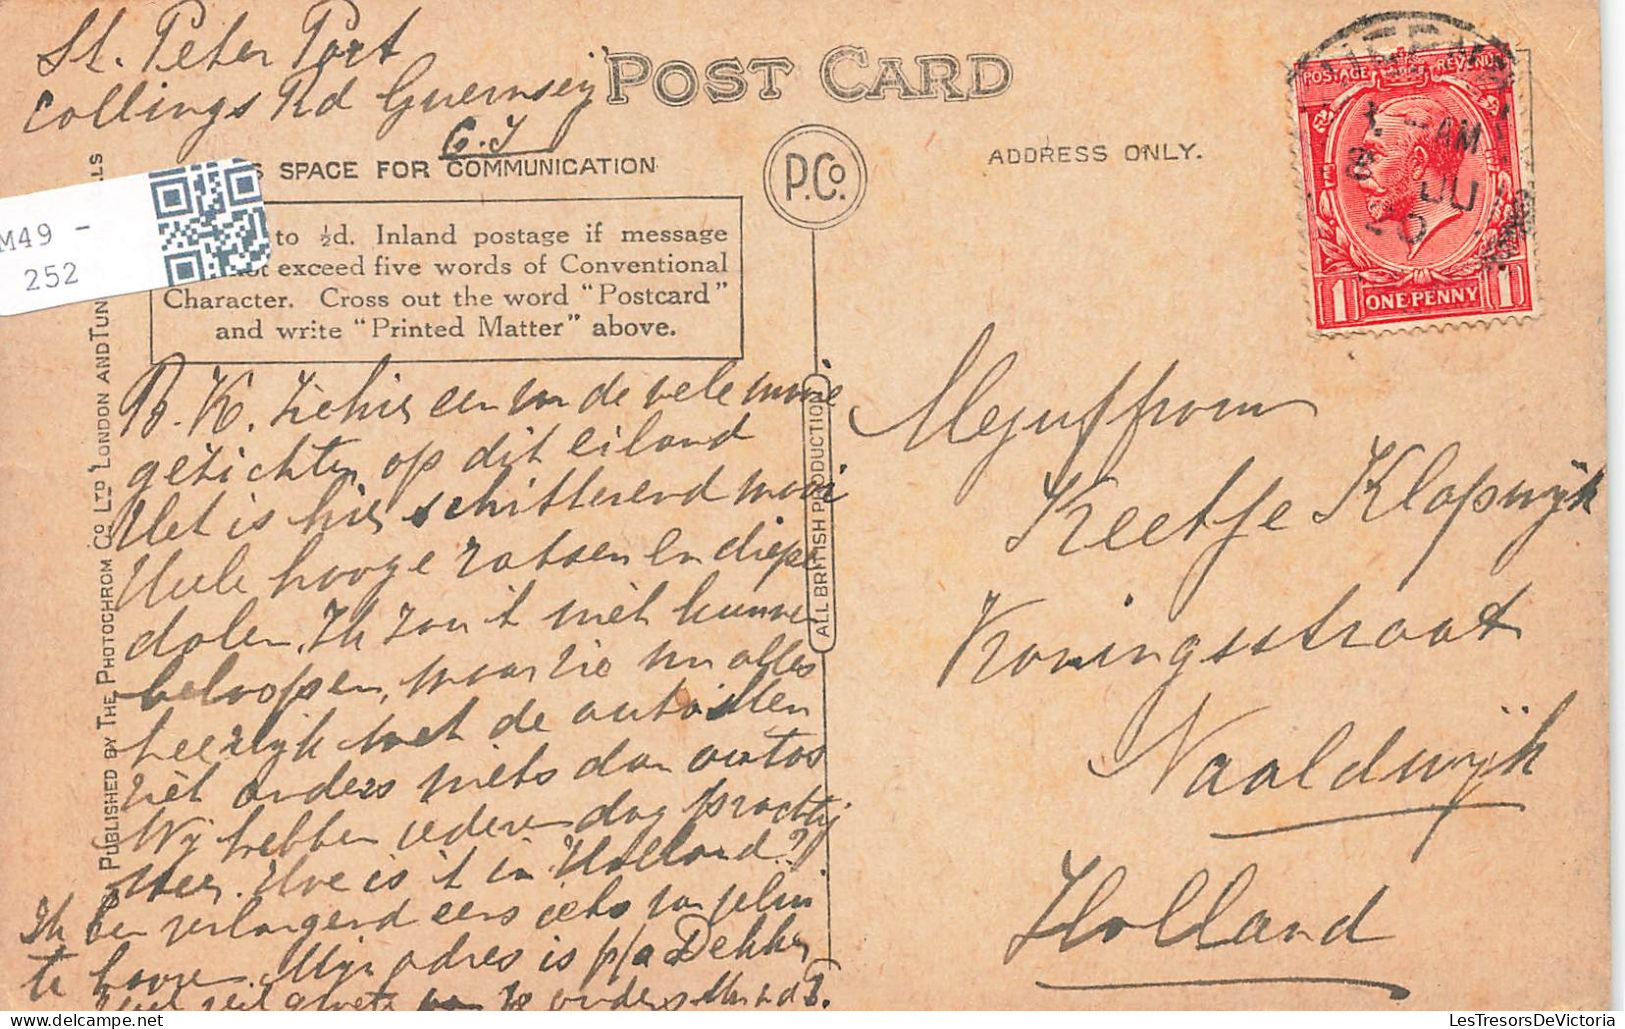 St. Peter Port
Collings Rd Guernseij
C.I
POST CARD
SPACE FOR COMMUNICATION
P.Co.
ADDRESS ONLY.
POSTAGE REVENUE
AM
JU
20
1 ONE PENNY 1
M49 -
252
to ½d. Inland postage if message
not exceed five words of Conventional
Character. Cross out the word "Postcard"
and write "Printed Matter" above.
PUBLISHED BY THE PHOTOCHROM CO LTD LONDON AND TUN LLS
ALL BRITISH PRODUCTION
B. K. Zie hier een van de vele mooie
gezichten op dit eiland
Het is hier schitterend mooi
Hele hooge rotsen en diepe
dalen. Ik zou 't niet kunnen
beloopen, maar zie nu alles
heerlijk met de auto
Ziet anders niets dan autos
Wij hebben iederen dag prachtig
weer. Hoe is 't in Holland?
Ik ben verlangend eens iets van jelui
te hooren. Mijn adres is p/a Dekker
Mejuffrouw
Keetje Klapwijk
Koningsstraat
Naaldwijk
Holland
LesTresorsDeVictoria.com